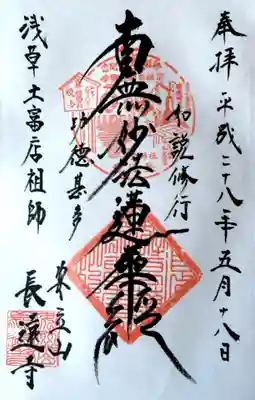 奉拝 平成二十八年五月十八日
如説修行
南無妙法蓮華経
功徳甚多
浅草土富店祖師
長遠寺